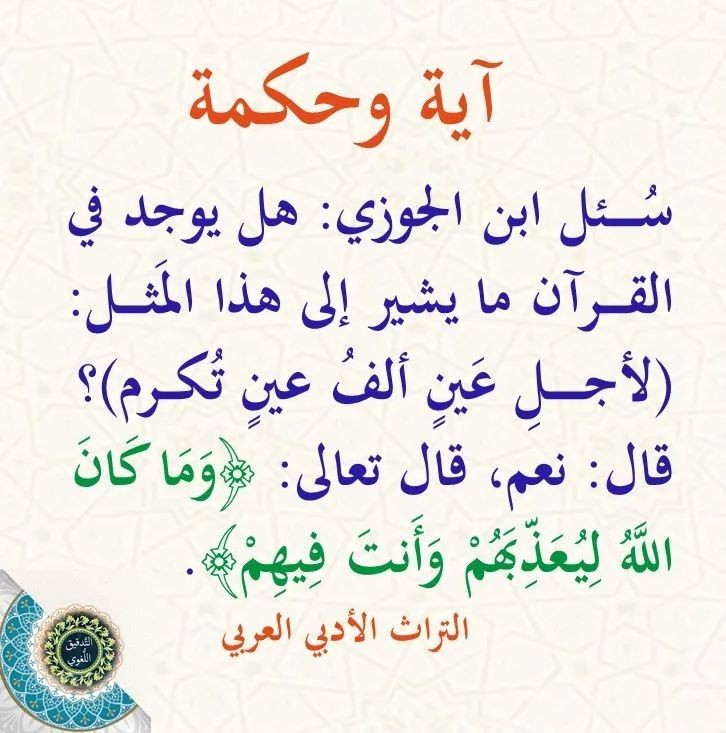 آية وحكمة
سُـــئل ابن الجوزي: هل يوجد في
القـــرآن ما يشير إلى هذا المَثـــل:
(لأجـــلِ عَينٍ ألفُ عينٍ تُكـرم)؟
قال: نعم، قال تعالى: ﴿وَمَا كَانَ
اللَّهُ لِيُعَذِّبَهُمْ وَأَنتَ فِيهِمْ﴾.
التراث الأدبي العربي
التدقيق
اللغوي